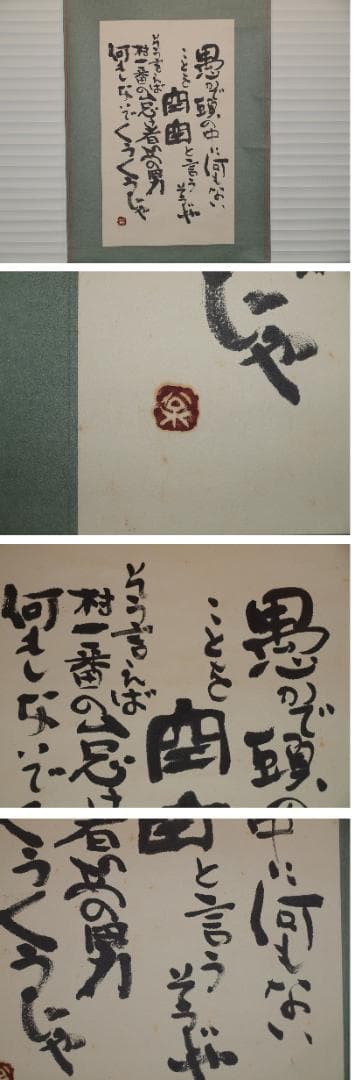 愚かで頭の中に何もない
ことを空空と言うそうぢゃ
そう言えば
村一番の怠け者あの男
何もしないでくうくうじゃ
じゃ
愚かで頭の
ことを空空
そう言えば
村一番の怠け
何もしないでく
中に何もない
と言うそうぢゃ
者あの男
うくうじゃ